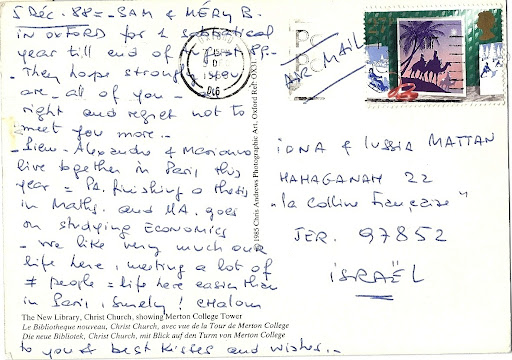 5 DEC. 88 = SAM & MÉRY B.
in OXFORD for 1 sabbatical
year till end of August 89 -
- They hope strongly you
are - all of you - all
right and regret not to
meet you more -
- Alexandre & Marianne
live together in Paris this
year = finishing a thesis
in Maths. and MA. goes
on studying Economics
- We like very much our
life here, meeting a lot of
≠ people = life here easier than
in Paris, surely! CHALOM
to you & best kisses and wishes -
AIR MAIL
IDNA & LUSSIA MATTAN
HAHAGANAH 22
"La Colline Française"
JER. 97852
ISRAËL
© 1985 Chris Andrews Photographic Art, Oxford Ref: OX31
The New Library, Christ Church, showing Merton College Tower
Le Bibliotheque nouveau, Christ Church, avec vue de la Tour de Merton College
Die neue Bibliotek, Christ Church, mit Blick auf den Turm von Merton College